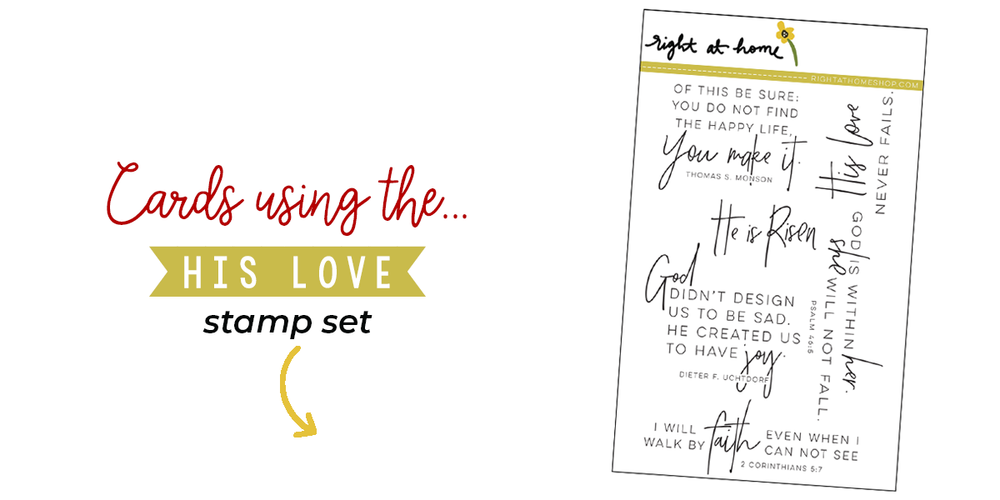 Cards using the...
HIS LOVE
stamp set
right at home
RIGHTATHOMESHOP.COM
OF THIS BE SURE:
YOU DO NOT FIND
THE HAPPY LIFE,
You make it.
THOMAS S. MONSON
His love
NEVER FAILS.
He is Risen
God
DIDN'T DESIGN
US TO BE SAD.
HE CREATED US
TO HAVE joy.
DIETER F. UCHTDORF
GOD IS WITHIN her.
she WILL NOT FALL.
PSALM 46:5
I WILL
WALK BY faith EVEN WHEN I
CAN NOT SEE
2 CORINTHIANS 5:7